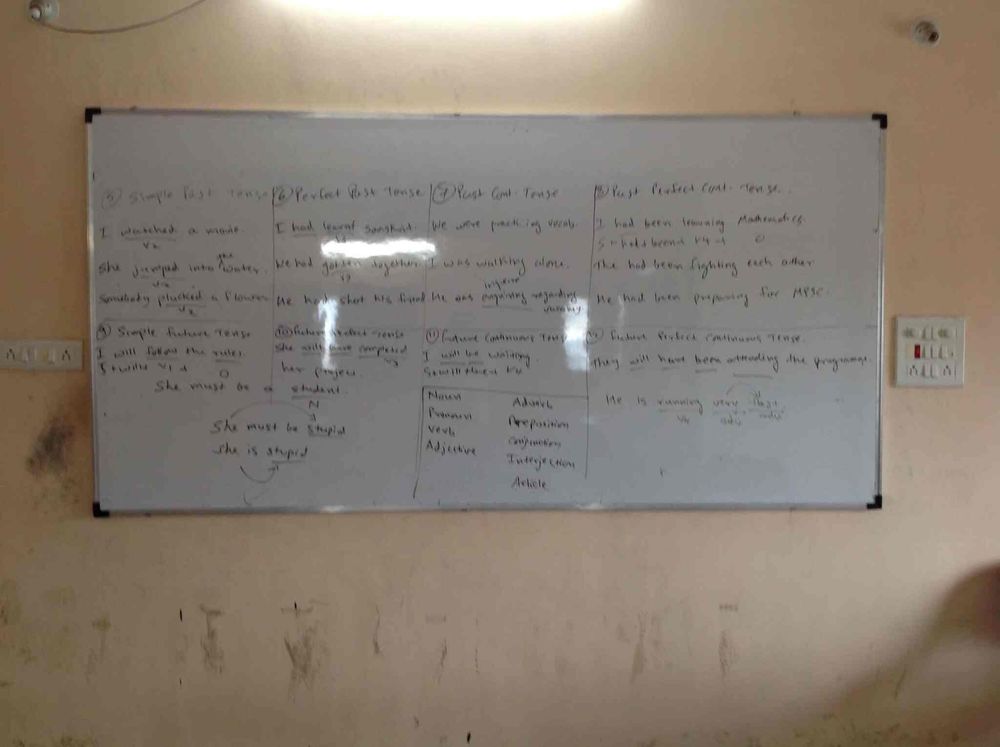 5 Simple Past Tense
I watched a movie.
V2
She jumped into the water.
V2
Somebody plucked a flower
V2
6 Perfect Past Tense
I had learnt
V3
We had gotten together.
V3
He had shot his friend
7 Past Cont. Tense
We were practicing vocab.
I was walking alone.
inquire
He was enquiring regarding
vacancy
8 Past Perfect Cont. Tense.
I had been learning Mathematics.
S + had + been + V4 + O
The had been fighting each other
He had been preparing for MPSC.
9 Simple Future Tense
I will follow the rules.
S + will + V1 + O
10 Future Perfect Tense
She will have completed
V3
her project.
11 Future Continuous Tense
I will be waiting
S + will + be + V4
12 Future Perfect Continuous Tense.
They will have been attending the programme.
She must be a student.
N
She must be stupid
She is stupid
Noun
Pronoun
Verb
Adjective
Adverb
Preposition
Conjunction
Interjection
Article
He is running very fast.
V4 adv. adv.